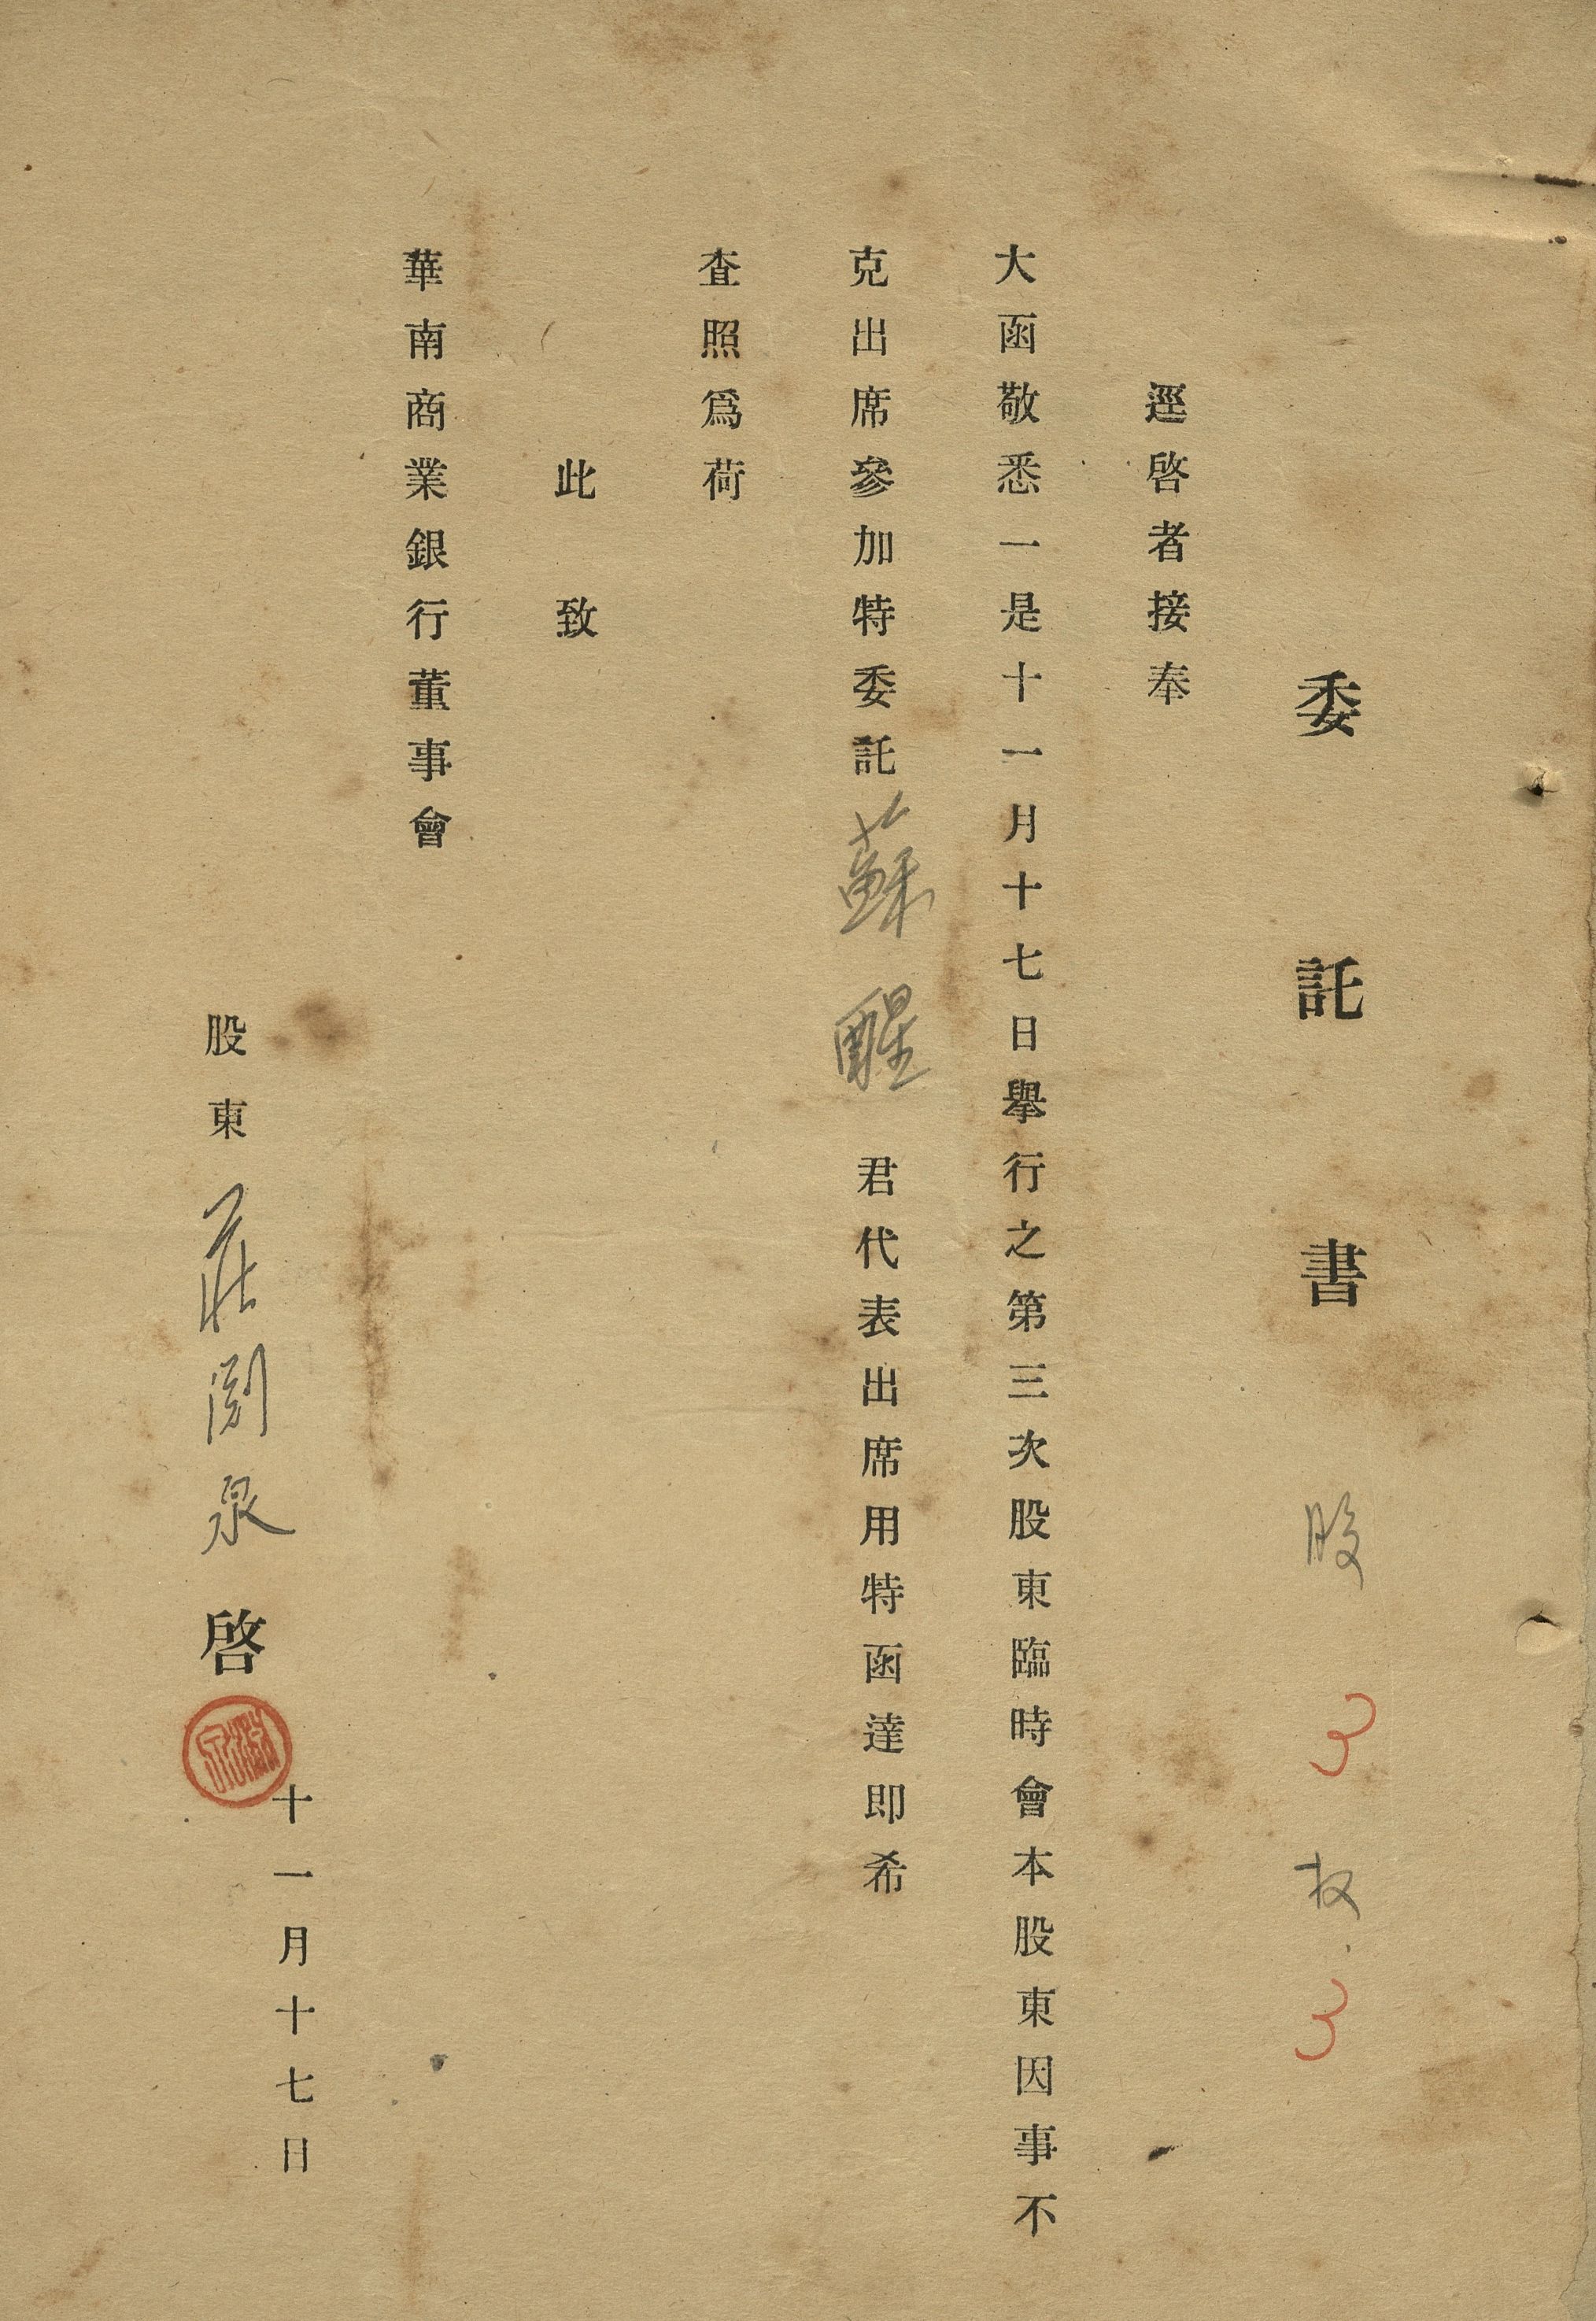 委託書 股 3 权 3
逕啓者接奉
大函敬悉一是十一月十七日舉行之第三次股東臨時會本股東因事不
克出席參加特委託蘇醒君代表出席用特函達即希
查照爲荷
此致
華南商業銀行董事會
十一月十七日
股東 莊渕泉 啓